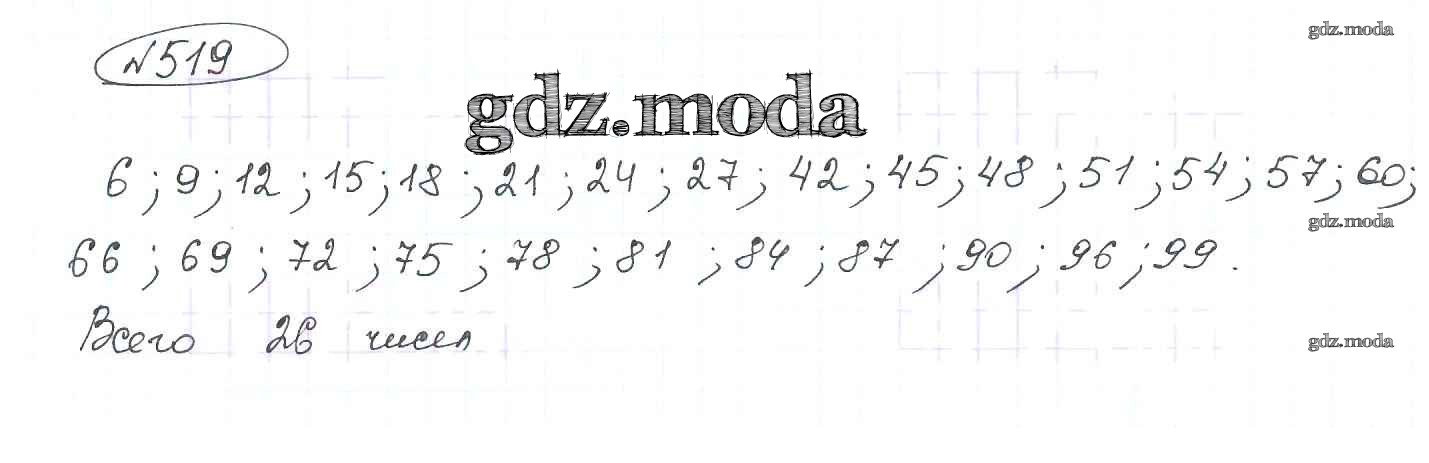 №519
gdz.moda
gdz.moda
6; 9; 12; 15; 18; 21; 24; 27; 42; 45; 48; 51; 54; 57; 60;
gdz.moda
66; 69; 72; 75; 78; 81; 84; 87; 90; 96; 99.
Всего 26 чисел
gdz.moda